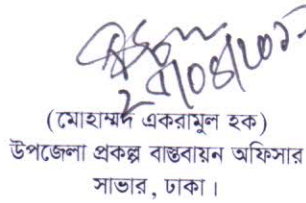 (মোহাম্মদ একরামুল হক)
উপজেলা প্রকল্প বাস্তবায়ন অফিসার
সাভার, ঢাকা।